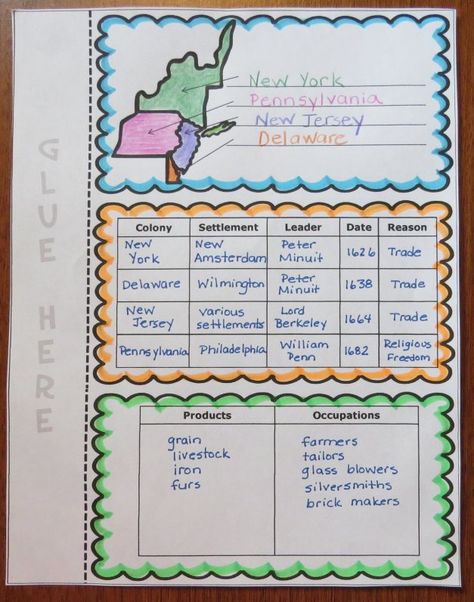 GLUE HERE
New York
Pennsylvania
New Jersey
Delaware
Colony Settlement Leader Date Reason
New York New Amsterdam Peter Minuit 1626 Trade
Delaware Wilmington Peter Minuit 1638 Trade
New Jersey various settlements Lord Berkeley 1664 Trade
Pennsylvania Philadelphia William Penn 1682 Religious Freedom
Products Occupations
grain farmers
livestock tailors
iron glass blowers
furs silversmiths
brick makers